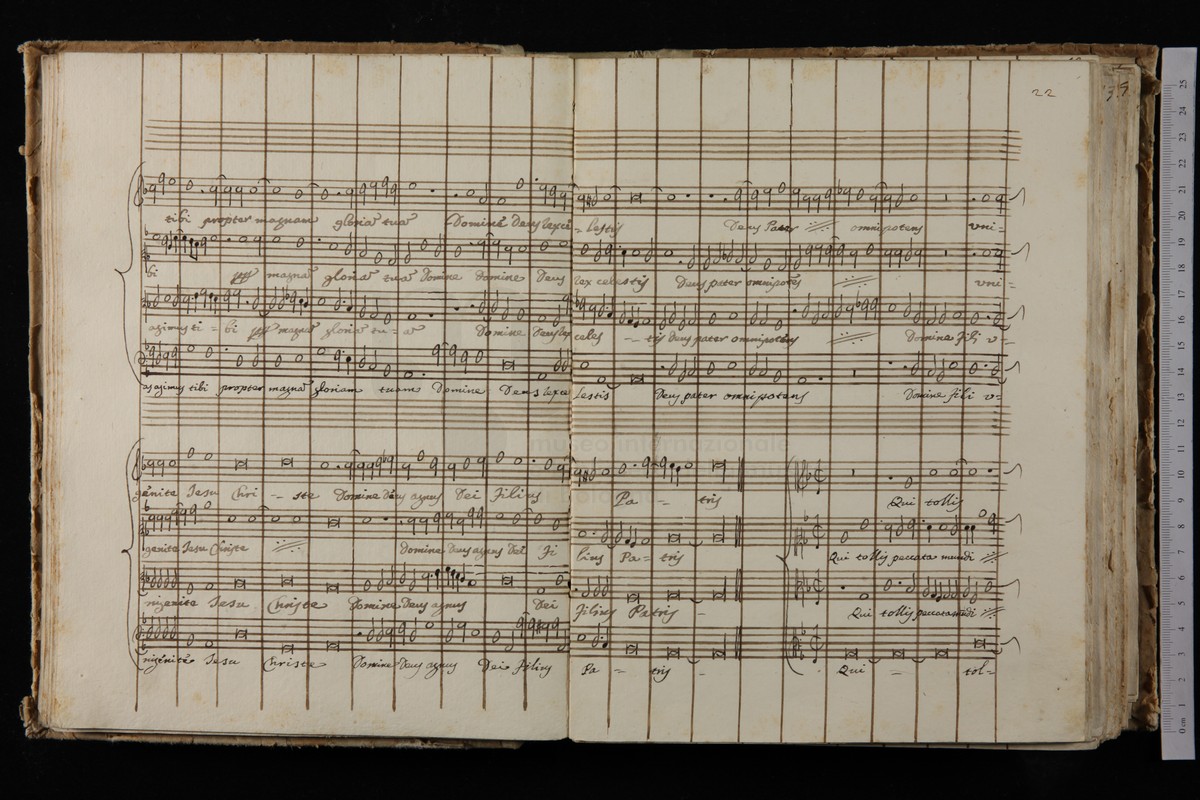 22
tibi propter magnam gloriã tuã Domine Deus Rex cæ - lestis Deus Pater omnipotens uni=
bi magnã gloriã tuã Domine domine Deus rex celestis Deus pater omnipotẽs uni=
agimus ti = bi magnã gloriã tu = ã Domine Deus Rex celes - - tis Deus pater omnipotens Domine Fili v=
as agimus tibi propter magnã gloriam tuam Domine Deus Rex cæ lestis Deus pater omnipotens Domine fili v=
museo internazionale
genite Iesu Chri - ste Domine deus agnus Dei Filius Pa - tris Qui tollis
genite Iesu Christe Domine Deus agnus Dei Fi lius Pa - tris Qui tollis peccata mundi
nigenite Iesu Christe Domine Deus agnus Dei Filius Patris - Qui tollis peccata mũdi
nigenite Iesu Christe Domine Deus agnus Dei Filius Pa - tris - Qui - tol=
0 cm 1 2 3 4 5 6 7 8 9 10 11 12 13 14 15 16 17 18 19 20 21 22 23 24 25